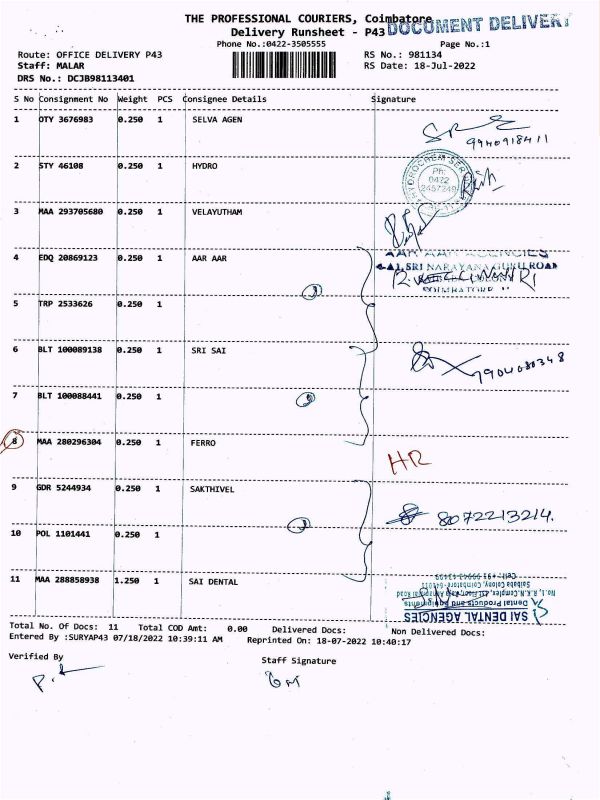 THE PROFESSIONAL COURIERS, Coimbatore
DOCUMENT DELIVERY
Delivery Runsheet - P43
Phone No.:0422-3505555
Page No.:1
Route: OFFICE DELIVERY P43
RS No.: 981134
Staff: MALAR
RS Date: 18-Jul-2022
DRS No.: DCJB98113401
S No Consignment No Weight PCS Consignee Details Signature
1 OTY 3676983 0.250 1 SELVA AGEN
9940918411
2 STY 46108 0.250 1 HYDRO
HYDROCHEM SER
Ph:
0422
2457249
3 MAA 293705680 0.250 1 VELAYUTHAM
4 EDQ 20869123 0.250 1 AAR AAR
AAR AAR AGENCIES
SRI NARAYANA GURU ROAD
COIMBATORE
5 TRP 2533626 0.250 1
6 BLT 100089138 0.250 1 SRI SAI
7904080348
7 BLT 100088441 0.250 1
8 MAA 280296304 0.250 1 FERRO
HR
9 GDR 5244934 0.250 1 SAKTHIVEL
8072213214.
10 POL 1101441 0.250 1
11 MAA 288858938 1.250 1 SAI DENTAL
SAI DENTAL AGENCIES
Dental Products and Equipments
Saibaba Colony, Coimbatore
Total No. Of Docs: 11 Total COD Amt: 0.00 Delivered Docs: Non Delivered Docs:
Entered By :SURYAP43 07/18/2022 10:39:11 AM Reprinted On: 18-07-2022 10:40:17
Verified By
Staff Signature